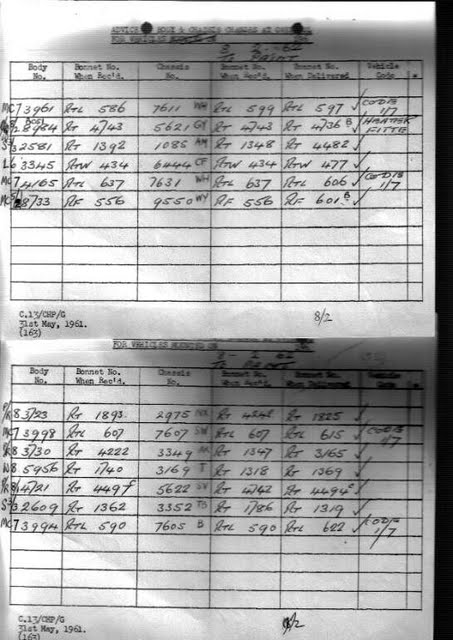 ADVICE BODY & CHASSIS CHANGES AT
FOR VEHICLES
8 2 62
Body No. Bonnet No. When Rec'd. Chassis No. Bonnet No. When Rec'd. Bonnet No. When Delivered Vehicle Code *
MC 7 3961 RTL 586 7611 WH RTL 599 RTL 597 ✓ COD 13 1/7
8984 RT 4743 5621 GY RT 4743 RT 4736 B ✓
S 3 2581 RT 1392 1085 AM RT 1348 RT 4482 ✓
L6 3345 RTW 434 6444 CF RTW 434 RTW 477 ✓
MC 7 4165 RTL 637 7631 WH RTL 637 RTL 606 ✓ COD 13 1/7
MC 8/33 RF 556 9550 WY RF 556 RF 601 B ✓
C.13/CHP/G
31st May, 1961.
(163)
8/2
FOR VEHICLES
8 - 2 62
Body No. Bonnet No. When Rec'd. Chassis No. Bonnet No. When Rec'd. Bonnet No. When Delivered Vehicle Code *
8 3/23 RT 1893 2975 RT RT 1825 ✓
MC 7 3998 RTL 607 7607 SW RTL 607 RTL 615 ✓ COD 13 1/7
8 3/30 RT 4222 3349 RT 1347 RT 3165 ✓
W 8 5956 RT 1740 3169 T RT 1318 RT 1369 ✓
8 4/21 RT 4497 5622 SV RT 4742 RT 4494 ✓
S 3 2609 RT 1362 3352 TB RT 1786 RT 1319 ✓
MC 7 3994 RTL 590 7605 B RTL 590 RTL 622 ✓ COD 13 1/7
C.13/CHP/G
31st May, 1961.
(163)
8/2